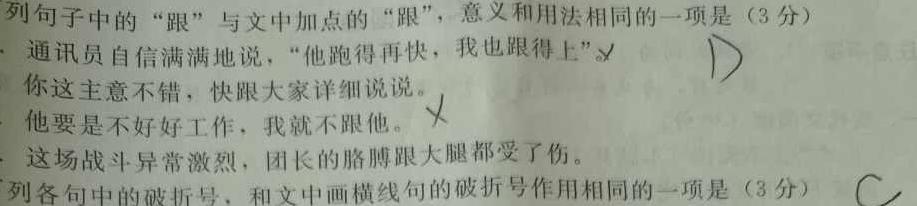 列句子中的“跟”与文中加点的“跟”，意义和用法相同的一项是（3分）
通讯员自信满满地说，“他跑得再快，我也跟得上”。 D
你这主意不错，快跟大家详细说说。
他要是不好好工作，我就不跟他。
这场战斗异常激烈，团长的胳膊跟大腿都受了伤。
列各句中的破折号，和文中画横线句的破折号作用相同的一项是（3分） C